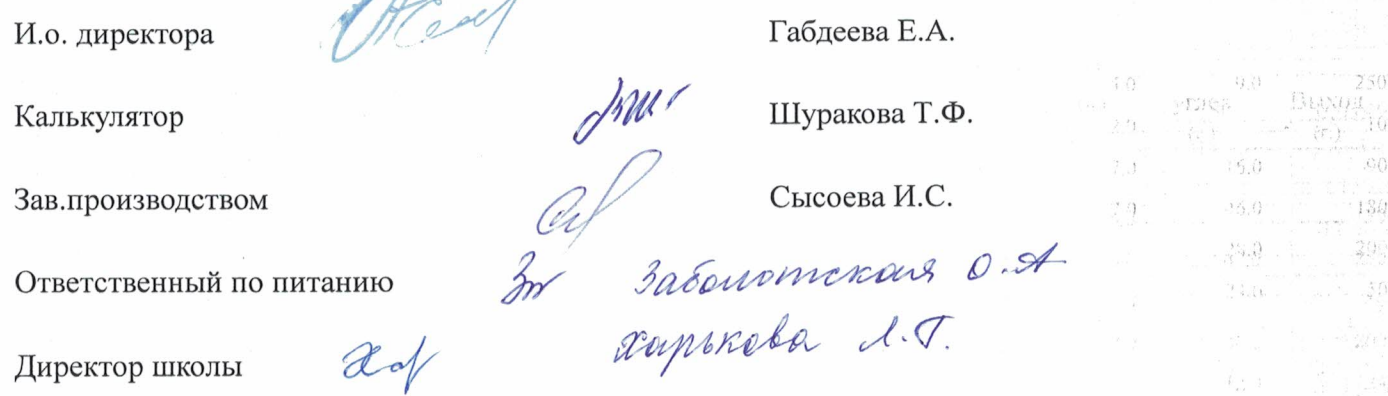 И.о. директора Габдеева Е.А.
Калькулятор Шуракова Т.Ф.
Зав.производством Сысоева И.С.
Ответственный по питанию Заболотская О.А
Директор школы Харькова Л.Г.